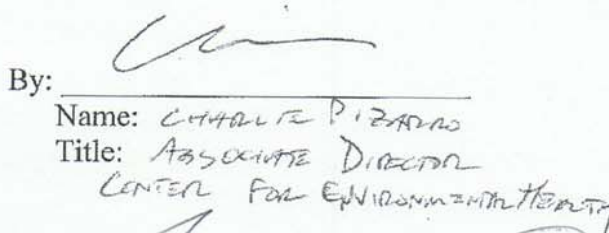 By:
Name: CHARLIE PIZARRO
Title: ASSOCIATE DIRECTOR
CENTER FOR ENVIRONMENTAL HEALTH